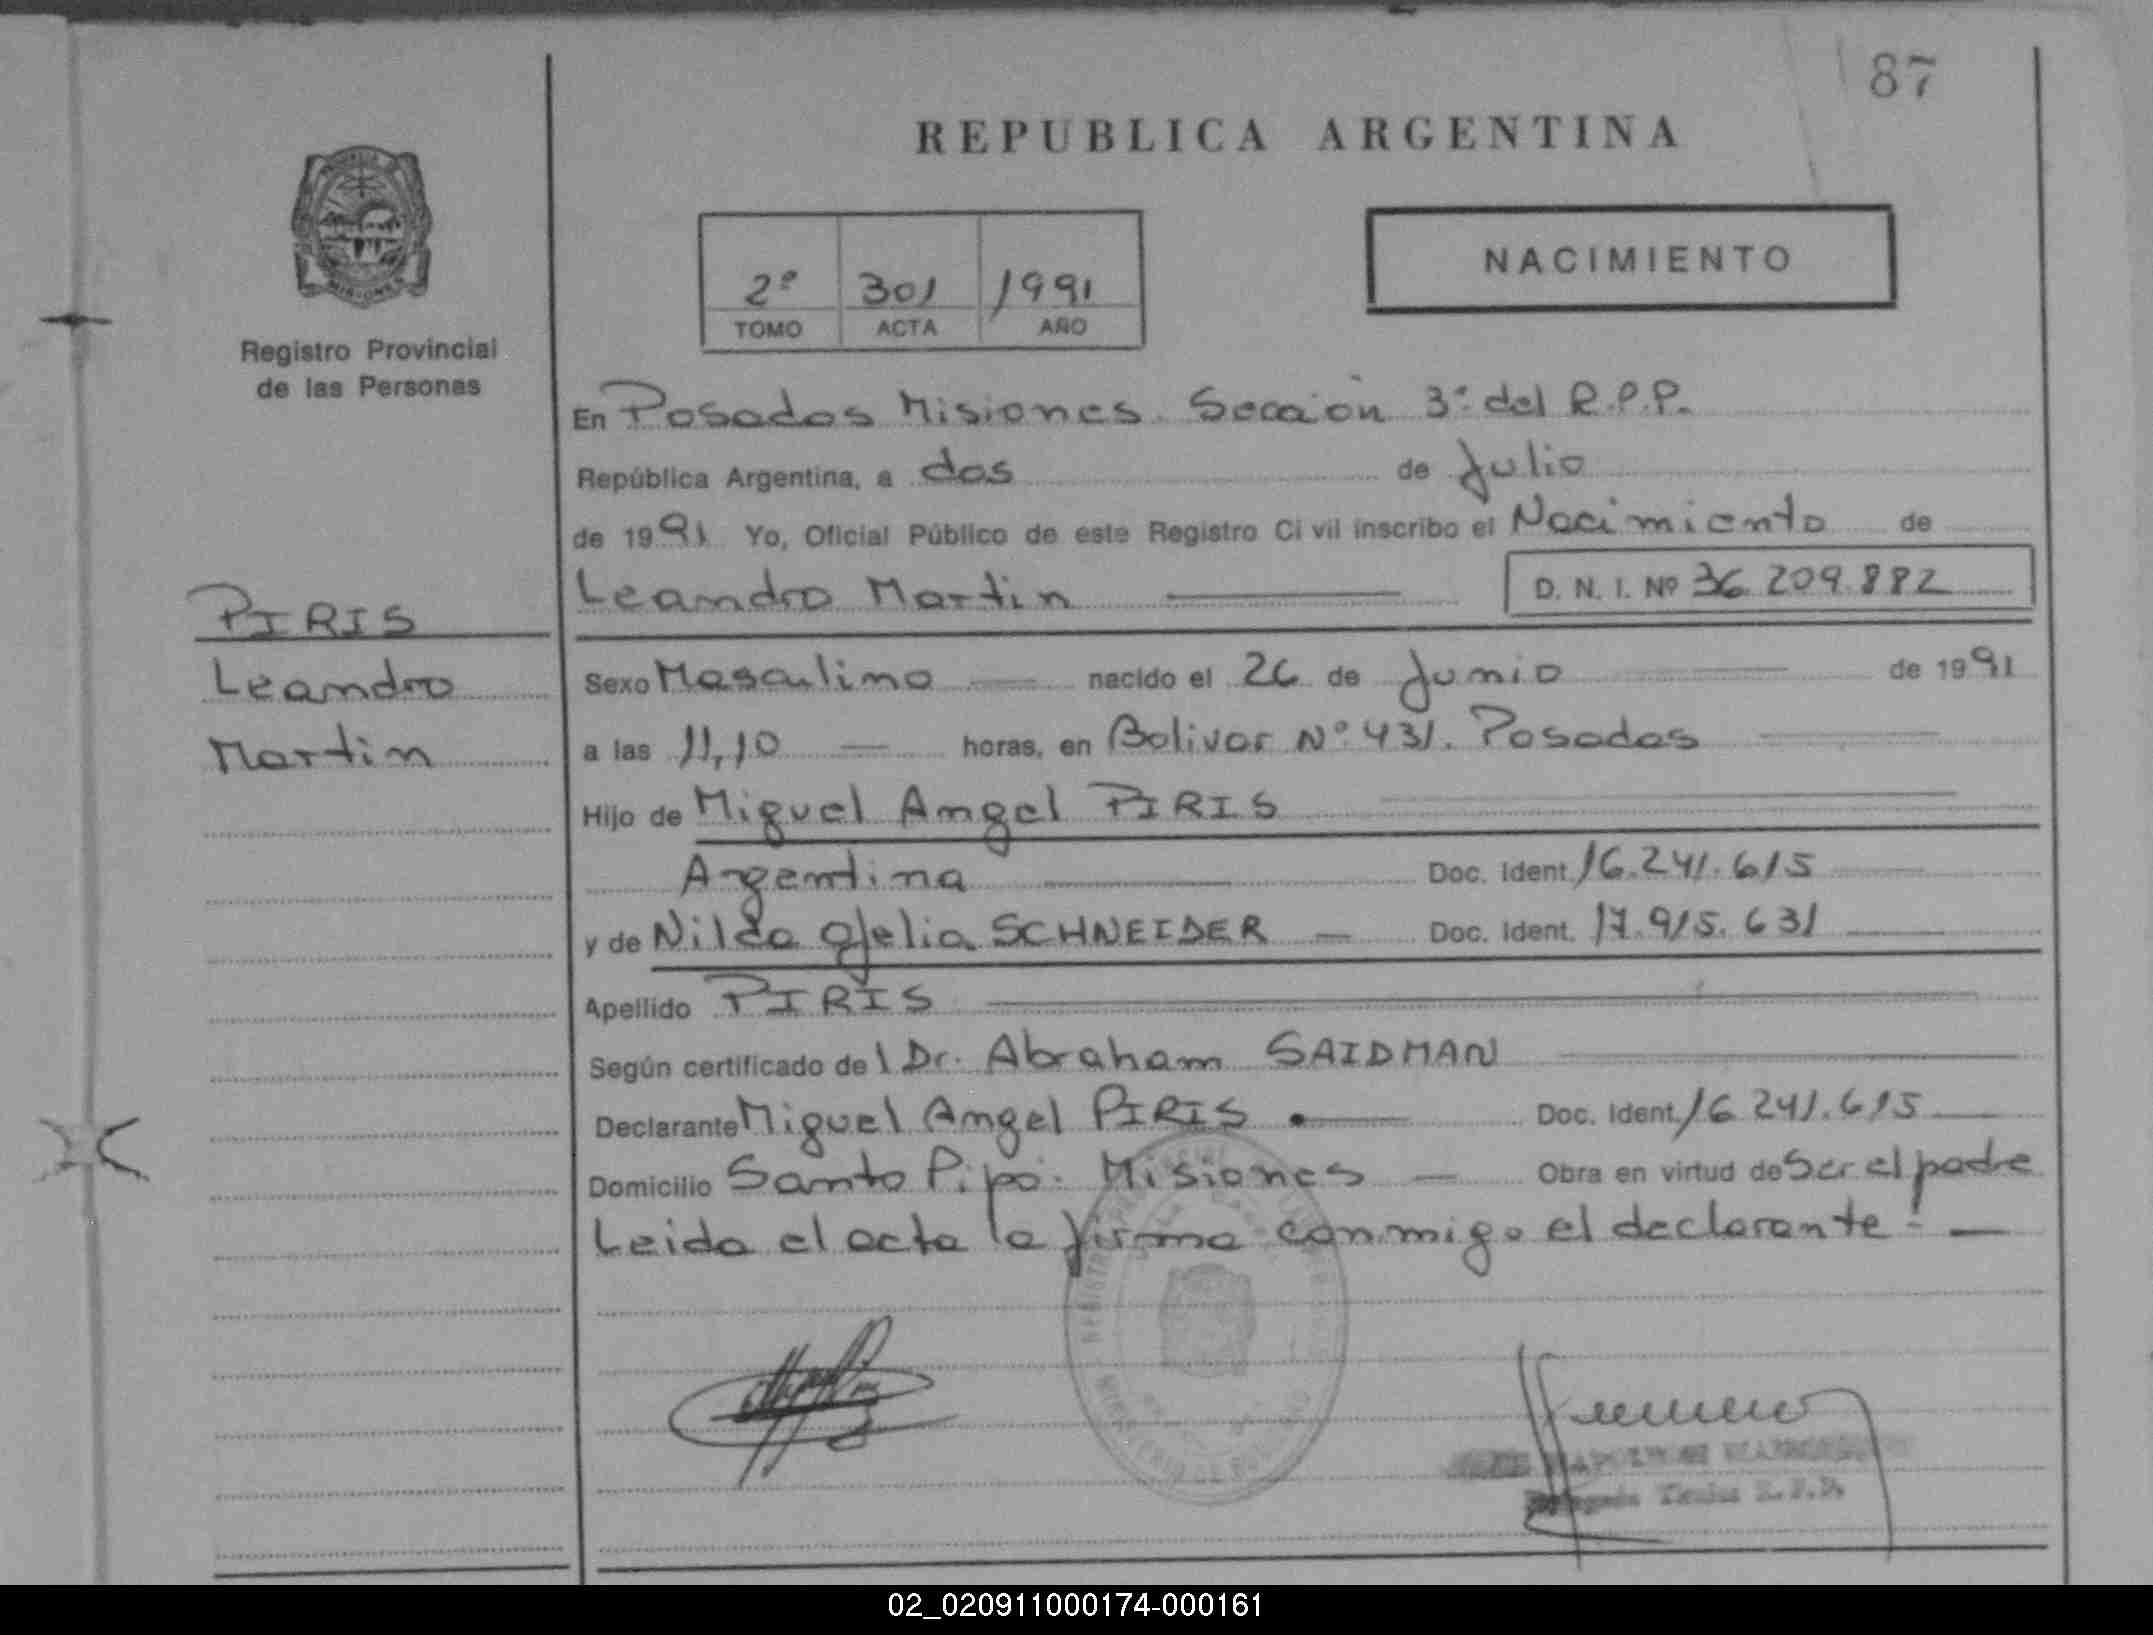 87
REPUBLICA ARGENTINA
MISIONES
Registro Provincial
de las Personas
2º 301 1991
TOMO ACTA AÑO
NACIMIENTO
En Posadas Misiones. Sección 3ª del R.P.P.
República Argentina, a dos de Julio
de 1991 Yo, Oficial Público de este Registro Civil inscribo el Nacimiento de
Leandro Martin D. N. I. Nº 36.209.882
PIRIS
Leandro
Martin
Sexo Masculino nacido el 26 de Junio de 1991
a las 11,10 horas, en Bolivar Nº 431. Posadas
Hijo de Miguel Angel PIRIS
Argentina Doc. Ident. 16.241.615
y de Nilda Ofelia SCHNEIDER Doc. Ident. 17.915.631
Apellido PIRIS
Según certificado del Dr. Abraham SAIDMAN
Declarante Miguel Angel PIRIS Doc. Ident. 16.241.615
Domicilio Santo Pipó. Misiones Obra en virtud de Ser el padre
Leida el acta la firma conmigo el declarante!
R.P.P.
02_020911000174-000161